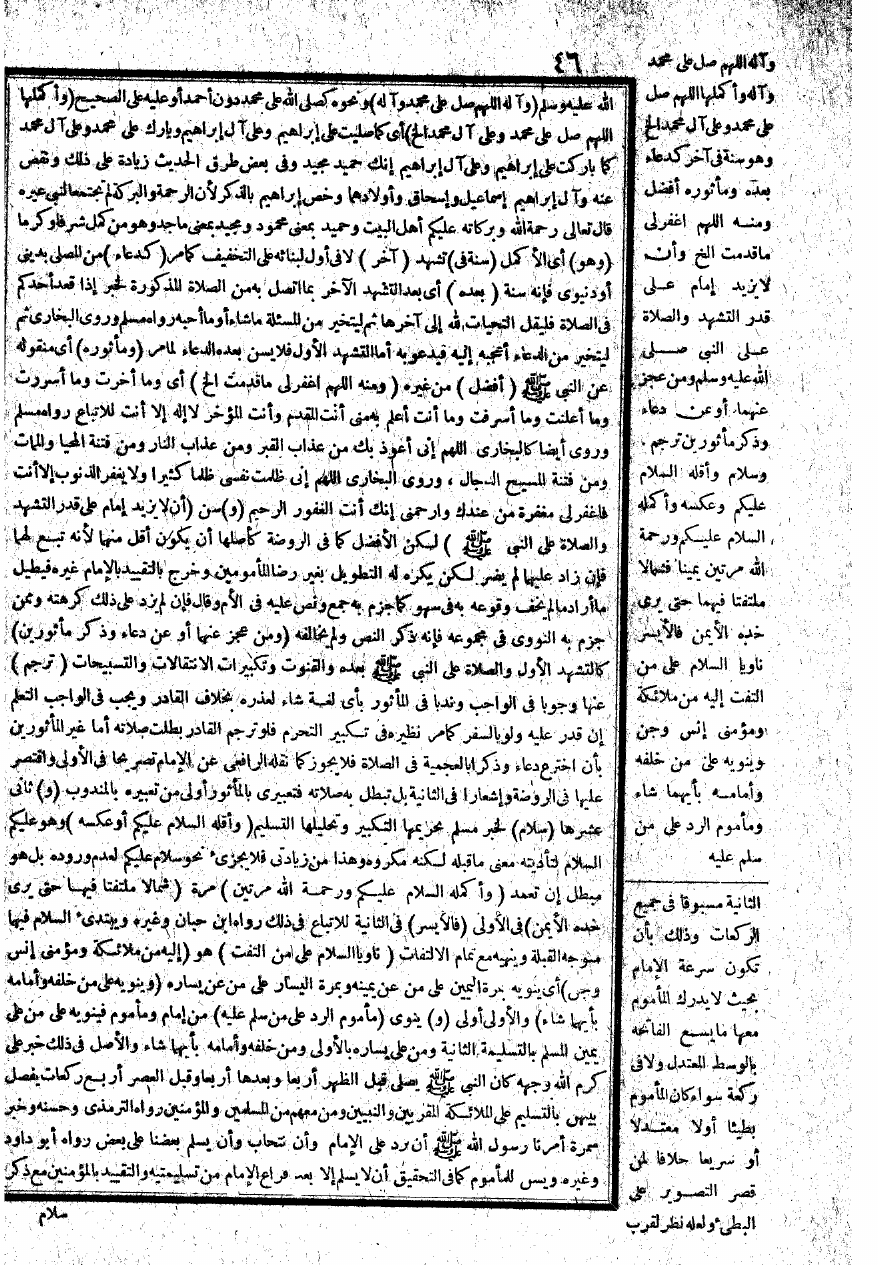 ٤٦
الله عليه وسلم (وآله اللهم صل على محمد وآله) ونحوه كصلى الله على محمد دون أحمد أو عليه على الصحيح (وأكملها
اللهم صل على محمد وعلى آل محمد الخ) أى كما صليت على إبراهيم وعلى آل إبراهيم وبارك على محمد وعلى آل محمد
كما باركت على إبراهيم وعلى آل إبراهيم إنك حميد مجيد وفى بعض طرق الحديث زيادة على ذلك ونقص
عنه وآل إبراهيم إسماعيل وإسحاق وأولادهما وخص إبراهيم بالذكر لأن الرحمة والبركة لم يجتمعا لنبى غيره
قال تعالى رحمة الله وبركاته عليكم أهل البيت وحميد بمعنى محمود ومجيد بمعنى ماجد وهو من كمل شرفا وكرما
(وهو) أى الأكمل (سنة فى) تشهد (آخر) لا فى أول لبنائه على التخفيف كما مر (كدعاء) من المصلى بدينى
أو دنيوى فإنه سنة (بعده) أى بعد التشهد الآخر بما اتصل به من الصلاة المذكورة لخبر إذا قعد أحدكم
فى الصلاة فليقل التحيات لله إلى آخرها ثم ليتخير من المسئلة ما شاء أو ما أحبه رواه مسلم وروى البخارى ثم
ليتخير من الدعاء أعجبه إليه فيدعو به أما التشهد الأول فلا يسن بعده الدعاء لما مر (ومأثوره) أى منقوله
عن النبى ﷺ (أفضل) من غيره (ومنه اللهم اغفر لى ما قدمت الخ) أى وما أخرت وما أسررت
وما أعلنت وما أسرفت وما أنت أعلم به منى أنت المقدم وأنت المؤخر لا إله إلا أنت للاتباع رواه مسلم
وروى أيضا كالبخارى اللهم إنى أعوذ بك من عذاب القبر ومن عذاب النار ومن فتنة المحيا والممات
ومن فتنة المسيح الدجال ، وروى البخارى اللهم إنى ظلمت نفسى ظلما كثيرا ولا يغفر الذنوب إلا أنت
فاغفر لى مغفرة من عندك وارحمنى إنك أنت الغفور الرحيم (و) سن (أن لا يزيد إمام على قدر التشهد
والصلاة على النبى ﷺ ) لكن الأفضل كما فى الروضة كأصلها أن يكون أقل منها لأنه تبع لها
فإن زاد عليها لم يضر لكن يكره له التطويل بغير رضا المأمومين وخرج بالتقييد بالإمام غيره فيطيل
ما أراد ما لم يخف وقوعه به فى سهو كما جزم به جمع ونص عليه فى الأم وقال فإن لم يزد على ذلك كرهته وممن
جزم به النووى فى مجموعه فإنه ذكر النص ولم يخالفه (ومن عجز عنها أو عن دعاء وذكر مأثورين)
كالتشهد الأول والصلاة على النبى ﷺ بعده والقنوت وتكبيرات الانتقالات والتسبيحات (ترجم)
عنها وجوبا فى الواجب وندبا فى المأثور بأى لغة شاء لعذره بخلاف القادر ويجب فى الواجب التعلم
إن قدر عليه ولو بالسفر كما مر نظيره فى تكبير التحرم فلو ترجم القادر بطلت صلاته أما غير المأثورين
بأن اخترع دعاء وذكرا بالعجمية فى الصلاة فلا يجوز كما نقله الرافعى عن الإمام تصريحا فى الأولى واقتصر
عليها فى الروضة وإشعارا فى الثانية بل تبطل به صلاته فتعبيرى بالمأثور أولى من تعبيره بالمندوب (و) ثانى
عشرها (سلام) لخبر مسلم تحريمها التكبير وتحليلها التسليم (وأقله السلام عليكم أو عكسه) وهو عليكم
السلام لتأديته معنى ما قبله لكنه مكروه وهذا من زيادتى فلا يجزىء نحو سلام عليكم لعدم وروده بل هو
مبطل إن تعمد (وأكمله السلام عليكم ورحمة الله مرتين) مرة (شمالا ملتفتا فيهما حتى يرى
خده الأيمن) فى الأولى (فالأيسر) فى الثانية للاتباع فى ذلك رواه ابن حبان وغيره ويبتدىء السلام فيها
متوجه القبلة وينهيه مع تمام الالتفات (ناويا السلام على من التفت) هو (إليه من ملائكة ومؤمنى إنس
وجن) أى ينويه بمرة اليمين على من عن يمينه وبمرة اليسار على من عن يساره (وينويه على من خلفه وأمامه
بأيهما شاء) والأولى أولى (و) ينوى (مأموم الرد على من سلم عليه) من إمام ومأموم فينويه على من على
يمين المسلم بالتسليمة الثانية ومن على يساره بالأولى ومن خلفه وأمامه بأيهما شاء والأصل فى ذلك خبر على
كرم الله وجهه كان النبى ﷺ يصلى قبل الظهر أربعا وبعدها أربعا وقبل العصر أربع ركعات يفصل
بينهن بالتسليم على الملائكة المقربين والنبيين ومن معهم من المسلمين والمؤمنين رواه الترمذى وحسنه وخبر
سمرة أمرنا رسول الله ﷺ أن نرد على الإمام وأن نتحاب وأن يسلم بعضنا على بعض رواه أبو داود
وغيره ويسن للمأموم كما فى التحقيق أن لا يسلم إلا بعد فراغ الإمام من تسليمتيه والتقييد بالمؤمنين مع ذكر
سلام
وآله اللهم صل على محمد
وآله وأكملها اللهم صل
على محمد وعلى آل محمد الخ
وهو سنة فى آخر كدعاء
بعده ومأثوره أفضل
ومنه اللهم اغفر لى
ما قدمت الخ وأن
لا يزيد إمام على
قدر التشهد والصلاة
على النبى صلى
الله عليه وسلم ومن عجز
عنهما أو عن دعاء
وذكر مأثورين ترجم .
وسلام وأقله السلام
عليكم وعكسه وأكمله
السلام عليكم ورحمة
الله مرتين يمينا فشمالا
ملتفتا فيهما حتى يرى
خده الأيمن فالأيسر
ناويا السلام على من
التفت إليه من ملائكة
ومؤمنى إنس وجن
وينويه على من خلفه
وأمامه بأيهما شاء
ومأموم الرد على من
سلم عليه
الثانية مسبوقا فى جميع
الركعات وذلك بأن
تكون سرعة الإمام
بحيث لا يدرك المأموم
معها ما يسع الفاتحة
بالوسط المعتدل ولا فى
ركعة سواء كان المأموم
بطيئا أولا معتدلا
أو سريعا خلافا لمن
قصر التصوير على
البطىء ولعله نظر لقرب